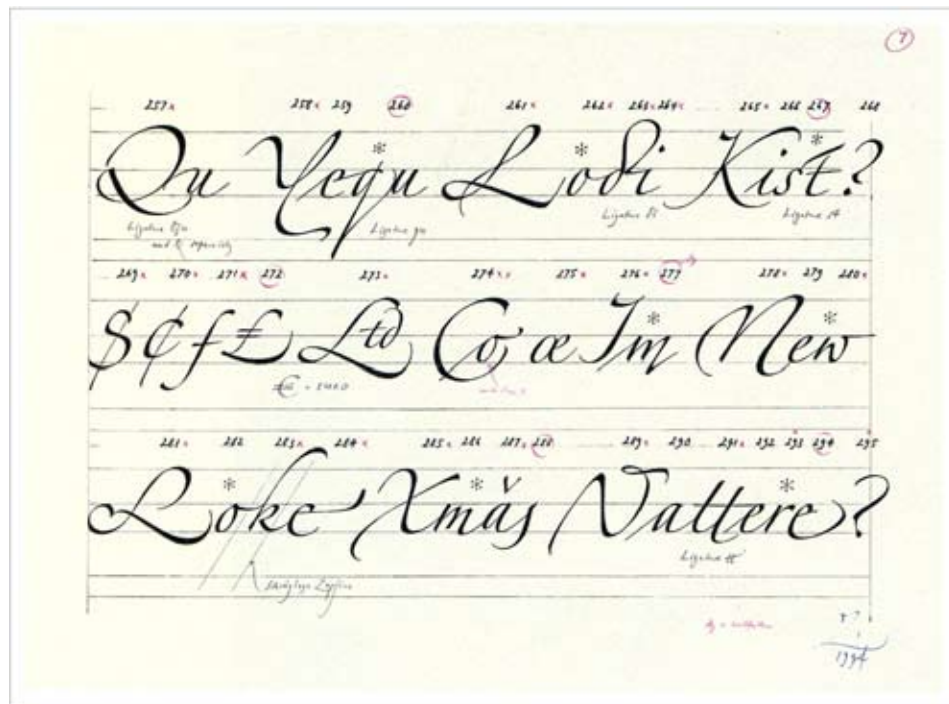 7
257× 258× 259 260 261× 262× 263× 264× 265× 266 267× 268
Qu Yequ Lodi Kist?
Ligatur Qu Ligatur qu Ligatur di Ligatur st
269× 270× 271× 272 273× 274×× 275× 276× 277 278× 279 280×
$ ¢ ƒ £ Ltd Co œ Im New
€ = EURO
281× 282 283× 284× 285× 286 287× 288 289× 290 291× 292 293 294 295
Loke Xmas Nattere?
Ligatur tt
1994